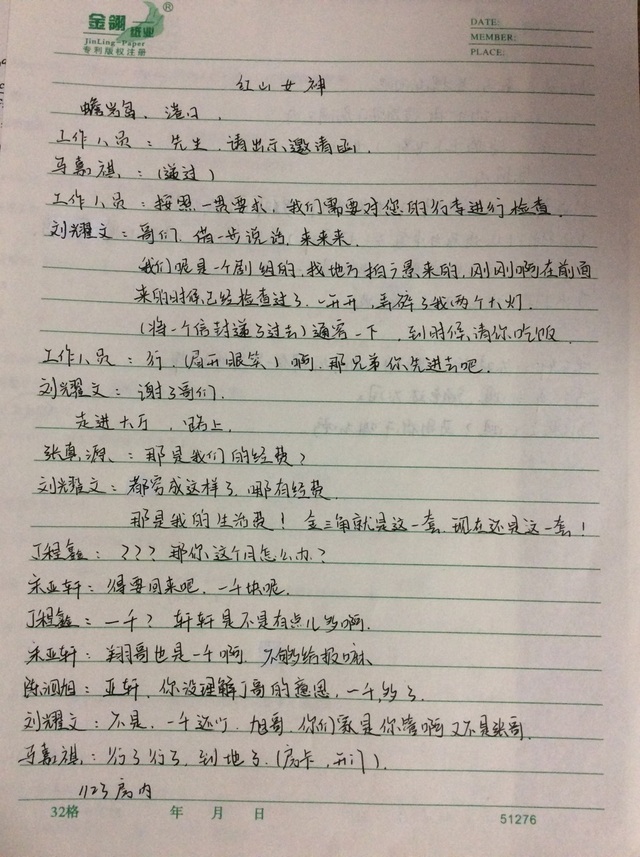 金翎纸业®
JinLing-Paper
专利版权注册
DATE:
MEMBER:
PLACE:
红山女神
蟾宫，港口，
工作人员：先生，请出示邀请函，
马嘉祺：（递过）
工作人员：按照一贯要求，我们需要对您的行李进行检查。
刘耀文：哥们，借一步说话，来来来，
我们呢是一个剧组的，找地方拍广景来的，刚刚啊在前面
来的时候已经检查过了，一开开，弄碎了我两个大灯，
（将一个信封递了过去）通容一下，到时候请你吃饭，
工作人员：行，（眉开眼笑）啊，那兄弟你先进去吧，
刘耀文：谢了哥们，
走进大厅，路上，
张真源：那是我们的经费？
刘耀文：都穷成这样了，哪有经费，
那是我的生活费！金三角就是这一套，现在还是这一套！
丁程鑫：？？？那你这个月怎么办？
宋亚轩：得要回来吧，一千块呢，
丁程鑫：一千？轩轩是不是有点儿少啊，
宋亚轩：翔哥也是一千啊，不够给报嘛
陈泗旭：亚轩，你没理解丁哥的意思，一千，够了，
刘耀文：不是，一千还少，旭哥，你们家是你管啊又不是张哥，
马嘉祺：行了行了，到地了，（房卡，开门），
1123房内
32格
年 月 日
51276